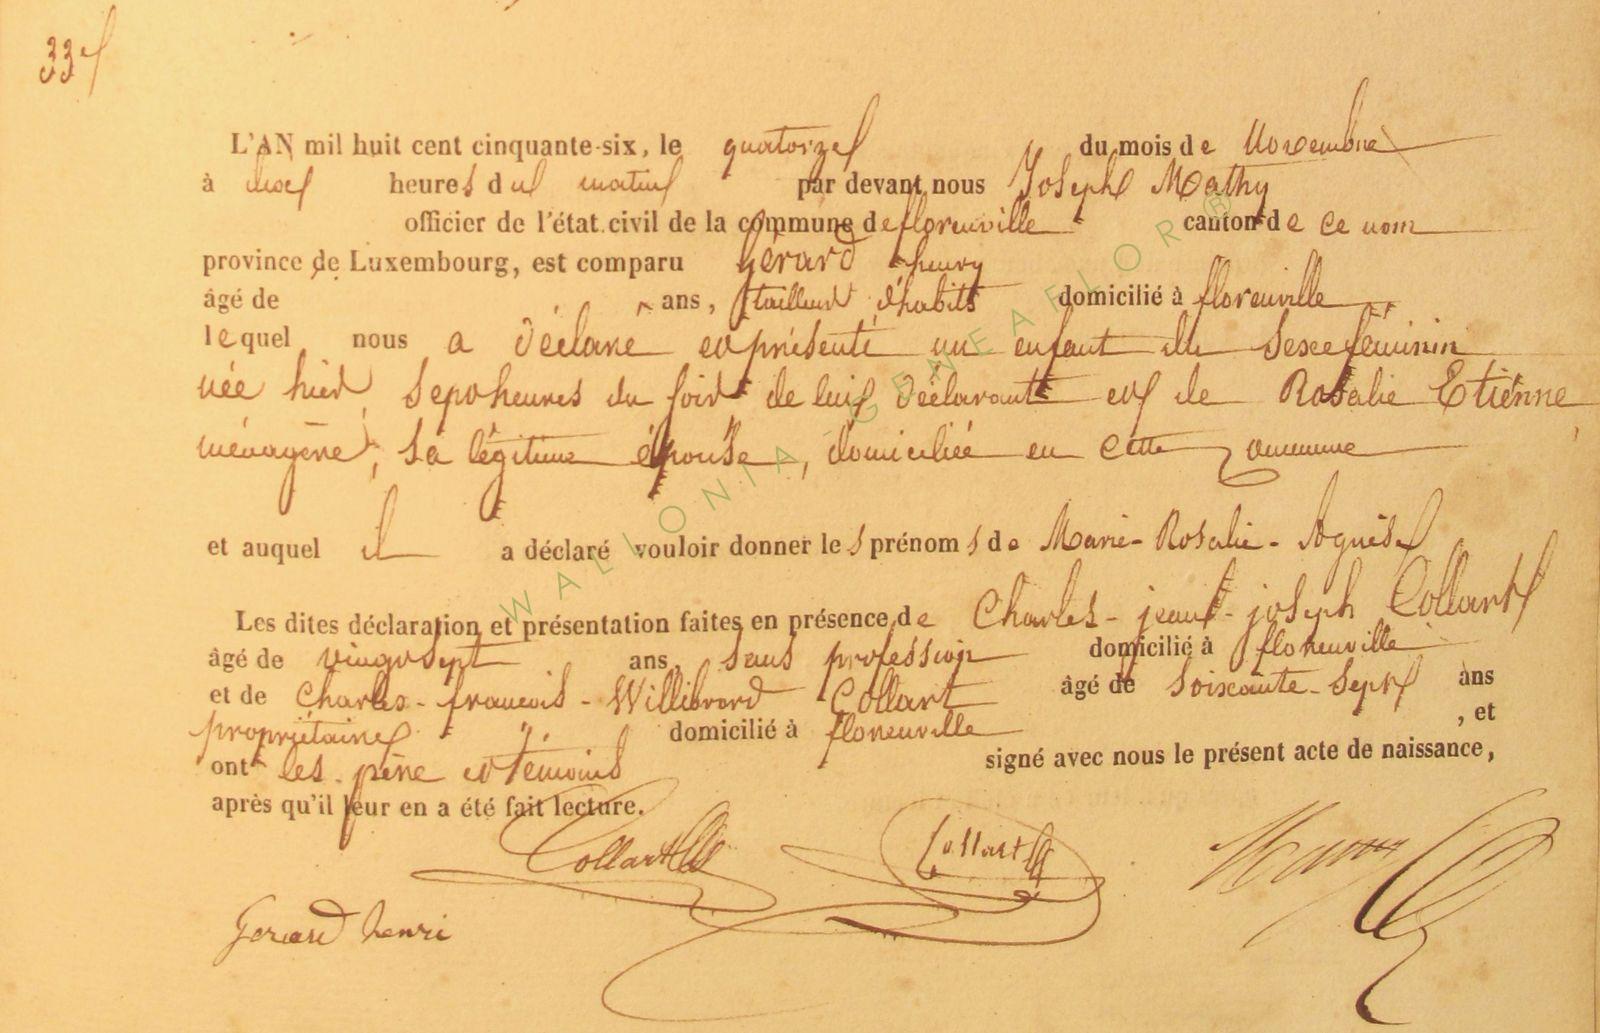 33
L'AN mil huit cent cinquante-six, le quatorze du mois de Novembre
à dix heures du matin par devant nous Joseph Mathy
officier de l'état civil de la commune de florenville canton de ce nom
province de Luxembourg, est comparu Gérard henry
âgé de ans, tailleur d'habits domicilié à florenville
lequel nous a déclaré et présenté un enfant du sexe féminin
née hier, sept heures du soir de lui déclarant et de Rosalie Etiénne,
ménagère, sa légitime épouse, domiciliée en cette commune
et auquel il a déclaré vouloir donner les prénoms de Marie-Rosalie-Agnès
Les dites déclaration et présentation faites en présence de Charles-jean-joseph Collart
âgé de vingt sept ans, sans profession domicilié à florenville
et de Charles-françois-Willibrord Collart âgé de soixante-sept ans
propriétaire " domicilié à florenville , et
ont les père et témoins signé avec nous le présent acte de naissance,
après qu'il leur en a été fait lecture.
Collart Collart
Gerard henri
WALLONIA-GENEAFLOR®